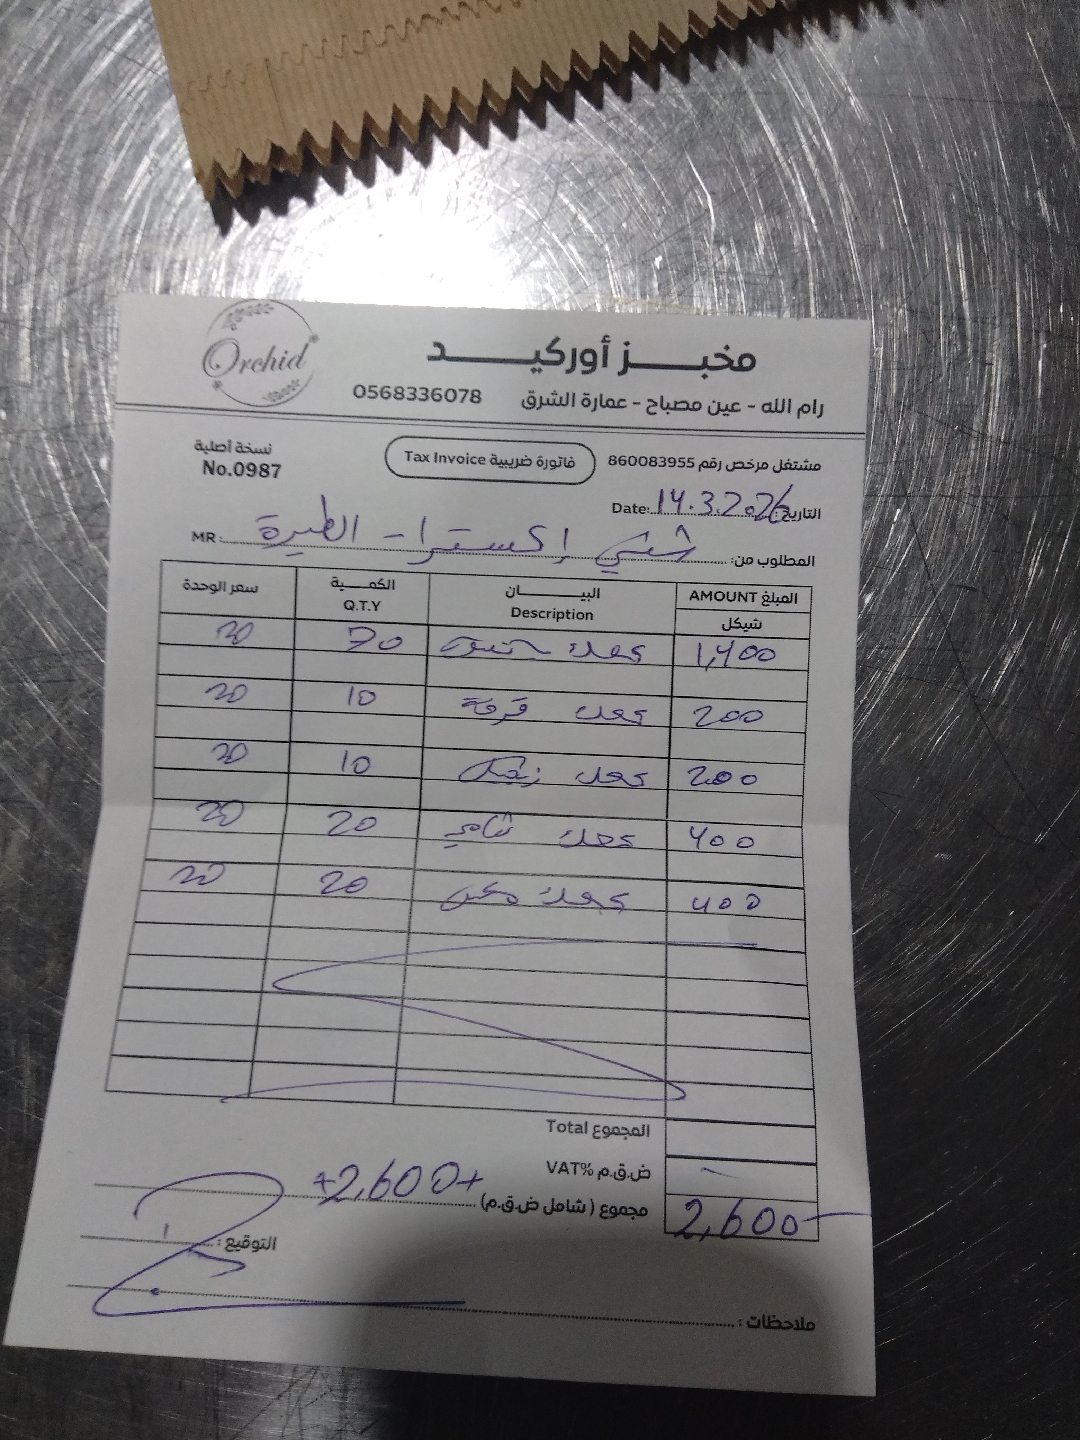 Orchid
مخبز أوركيد
رام الله - عين مصباح - عمارة الشرق 0568336078
نسخة أصلية
No.0987
فاتورة ضريبية Tax Invoice
مشتغل مرخص رقم 860083955
التاريخ: Date: 14.3.2026
المطلوب من: إكسترا - الطيرة MR:
المبلغ AMOUNT البيـــــان الكمـــية سعر الوحدة
شيكل Description Q.T.Y
1,400 كعك 70 20
200 كعك قرفة 10 20
200 كعك 10 20
400 كعك 20 20
400 كعك 20 20
المجموع Total
ض.ق.م VAT%
مجموع ( شامل ض.ق.م) +2,600+ 2,600
التوقيع:
ملاحظات: